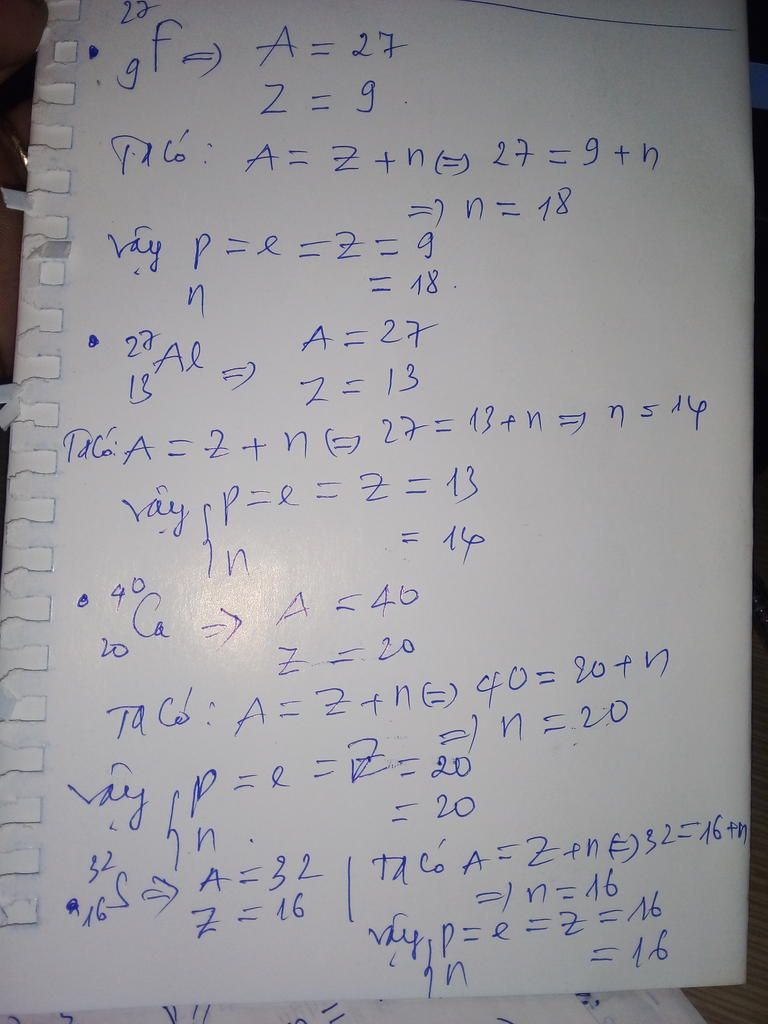 • ²⁷₉F => A = 27
Z = 9.
Ta có: A = Z + n <=> 27 = 9 + n
=> n = 18
Vậy p = e = Z = 9
n = 18.
• ²⁷₁₃Al => A = 27
Z = 13
Ta có: A = Z + n <=> 27 = 13 + n => n = 14
Vậy { p = e = Z = 13
n = 14
• ⁴⁰₂₀Ca => A = 40
Z = 20
Ta có: A = Z + n <=> 40 = 20 + n
=> n = 20
Vậy { p = e = Z = 20
n = 20
• ³²₁₆S => A = 32
Z = 16
Ta có A = Z + n <=> 32 = 16 + n
=> n = 16
Vậy { p = e = Z = 16
n = 16